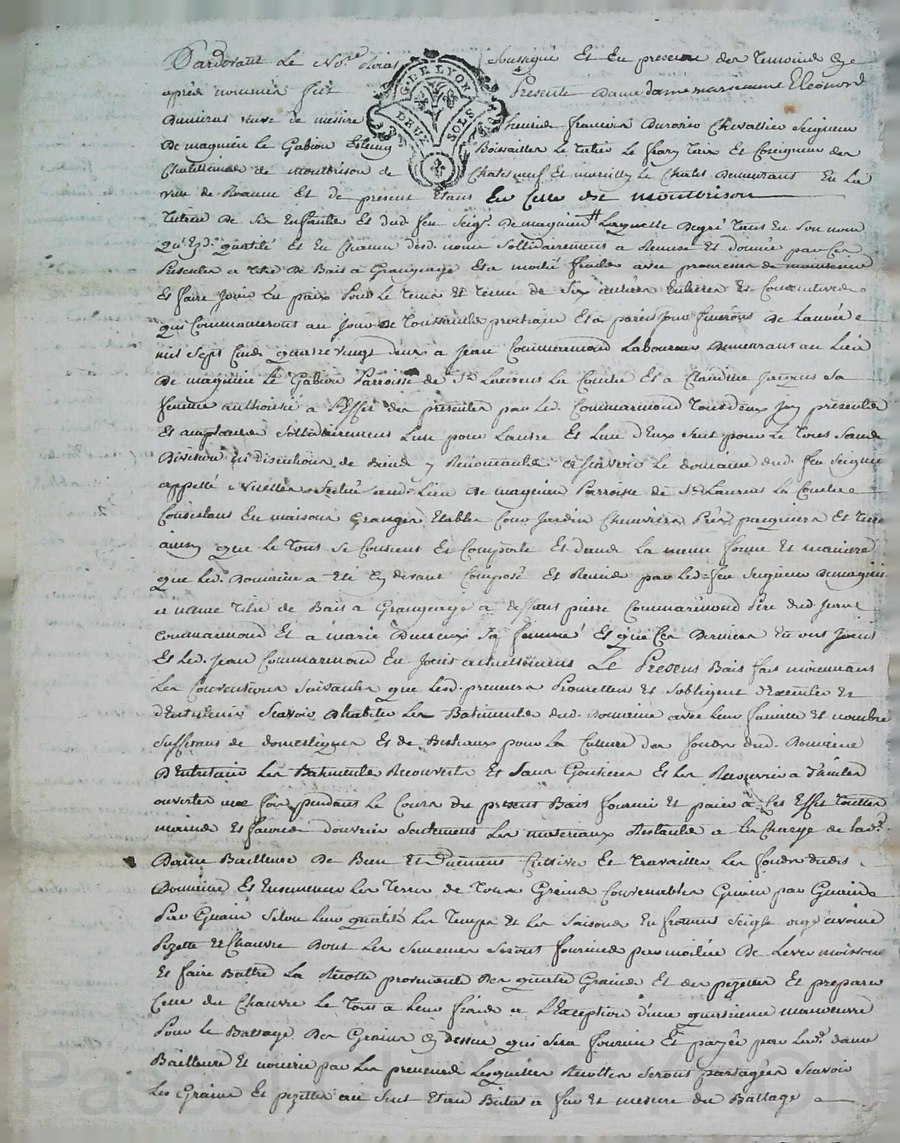 Pardevant Le No.re Roial soussigné Et En presence des Temoins Cy
après nommés fut Presente Dame marianne Eléonord
Dumirat veuve de messire henrie francois Durozier Chevallier Seigneur
De magnieu Le Gabion Estaing Boissailler Le
Chatellenies de montbrison de Chatelneuf Et marcilly Le Chatel Demeurant En La
ville de Roanne Et de present Etant En Celle de montbrison
Tutrice De Ses Enfants Et dud. feu Seigr. De magnieu Laquelle Degré Tant En Son nom
Qu'End. qualité Et En Chacun desd. noms Sollidairement a Remise Et donné par Ces
Presentes a titre De Bail à Grangeage Et a moitié fruits avec promesses de maintenir
Et faire Jouir En paix Pour Le Tems et Terme de Six années Entieres Et Consecutives
qui Commenceront au Jour De Toussaints prochain Et a pareil Jour finiront De Lannée
mil Sept Cent quatre vingt deux a Jean Commarmond Laboureur Demeurant au Lieu
De magnieu Le Gabion Parroisse de St. Laurent La Conche Et a Claudine Jacquet Sa
femme authorisée a L'Effet des presentes par led. Commarmond Tous deux Icy presents
Et acceptants Sollidairement Lun pour Lautre Et Lun d'Eux Seul pour Le Tout Sans
Division ni discution de Biens y Renoncants a Scavoir Le domaine dud. feu Seigneur
appellé Scitué aud. Lieu De magnieu Parroisse de St. Laurent La Conche
Consistant En maisons Granges Etables Cour Jardin Chenevier Prés paquiers Et Terres
ainsy que Le Tout Se Contient Et Comporte Et dans La meme forme Et maniere
que Led. Domaine a Eté Cy devant Composé Et Remis par Led. feu Seigneur De magnieu
a meme titre de Bail a Grangeage a deffunt pierre Commarmond Pere dud. Jean
Commarmond Et a marie Sa femme Et que Ces Derniers En ont Jouis
Et Led. Jean Commarmond En Jouit actuellement Le Present Bail fait moiennant
Les Conventions Suivantes que Lesd. preneurs Promettent Et Sobligent D'Executer Et
D'Entretenir Scavoir D'habiter Les Batiments dud. Domaine avec Leur famille Et nombre
Suffisant de domestiques Et de Bestiaux pour La Culture des fonds dud. Domaine
D'Entretenir Les Batiments Recouverts Et Sans Goutieres Et Les Recouvrir a Tuiles
ouvertes une fois pendant Le Cours du present Bail fournir Et paier à Cet Effet Toutes
mains Et favries d'ouvrier Seulement Les materiaux Restants a La Charge de lad.
Dame Bailleure De Bien Et duement Cultiver Et Travailler Les fonds dudit
Domaine Et Ensemencer Les Terres de Tous Grains Convenables Grain par Grain
Par Grain Selon Leur qualité Les Temps Et Les Saisons En froment Seigle orge avoine
Pezette Et Chanvre Dont Les Semences Seront fournies par moitié De Lever moisson
Et faire Battre La Recolte provenant Des quatre Grains Et des pezettes Et preparer
Celle du Chanvre Le Tout a Leur frais a L'Exception d'une quatrieme manœuvre
Pour Le Battage Des Grains Cy dessus qui Sera fournie Et payée par Lad. dame
Bailleure Et nourrie par Les preneurs Lesquelles Recoltes Seront partagées Scavoir
Les Grains Et pezettes au Seul Etant Battus a fur Et mesure du Battage
G. DE LYON
DEUX SOLS